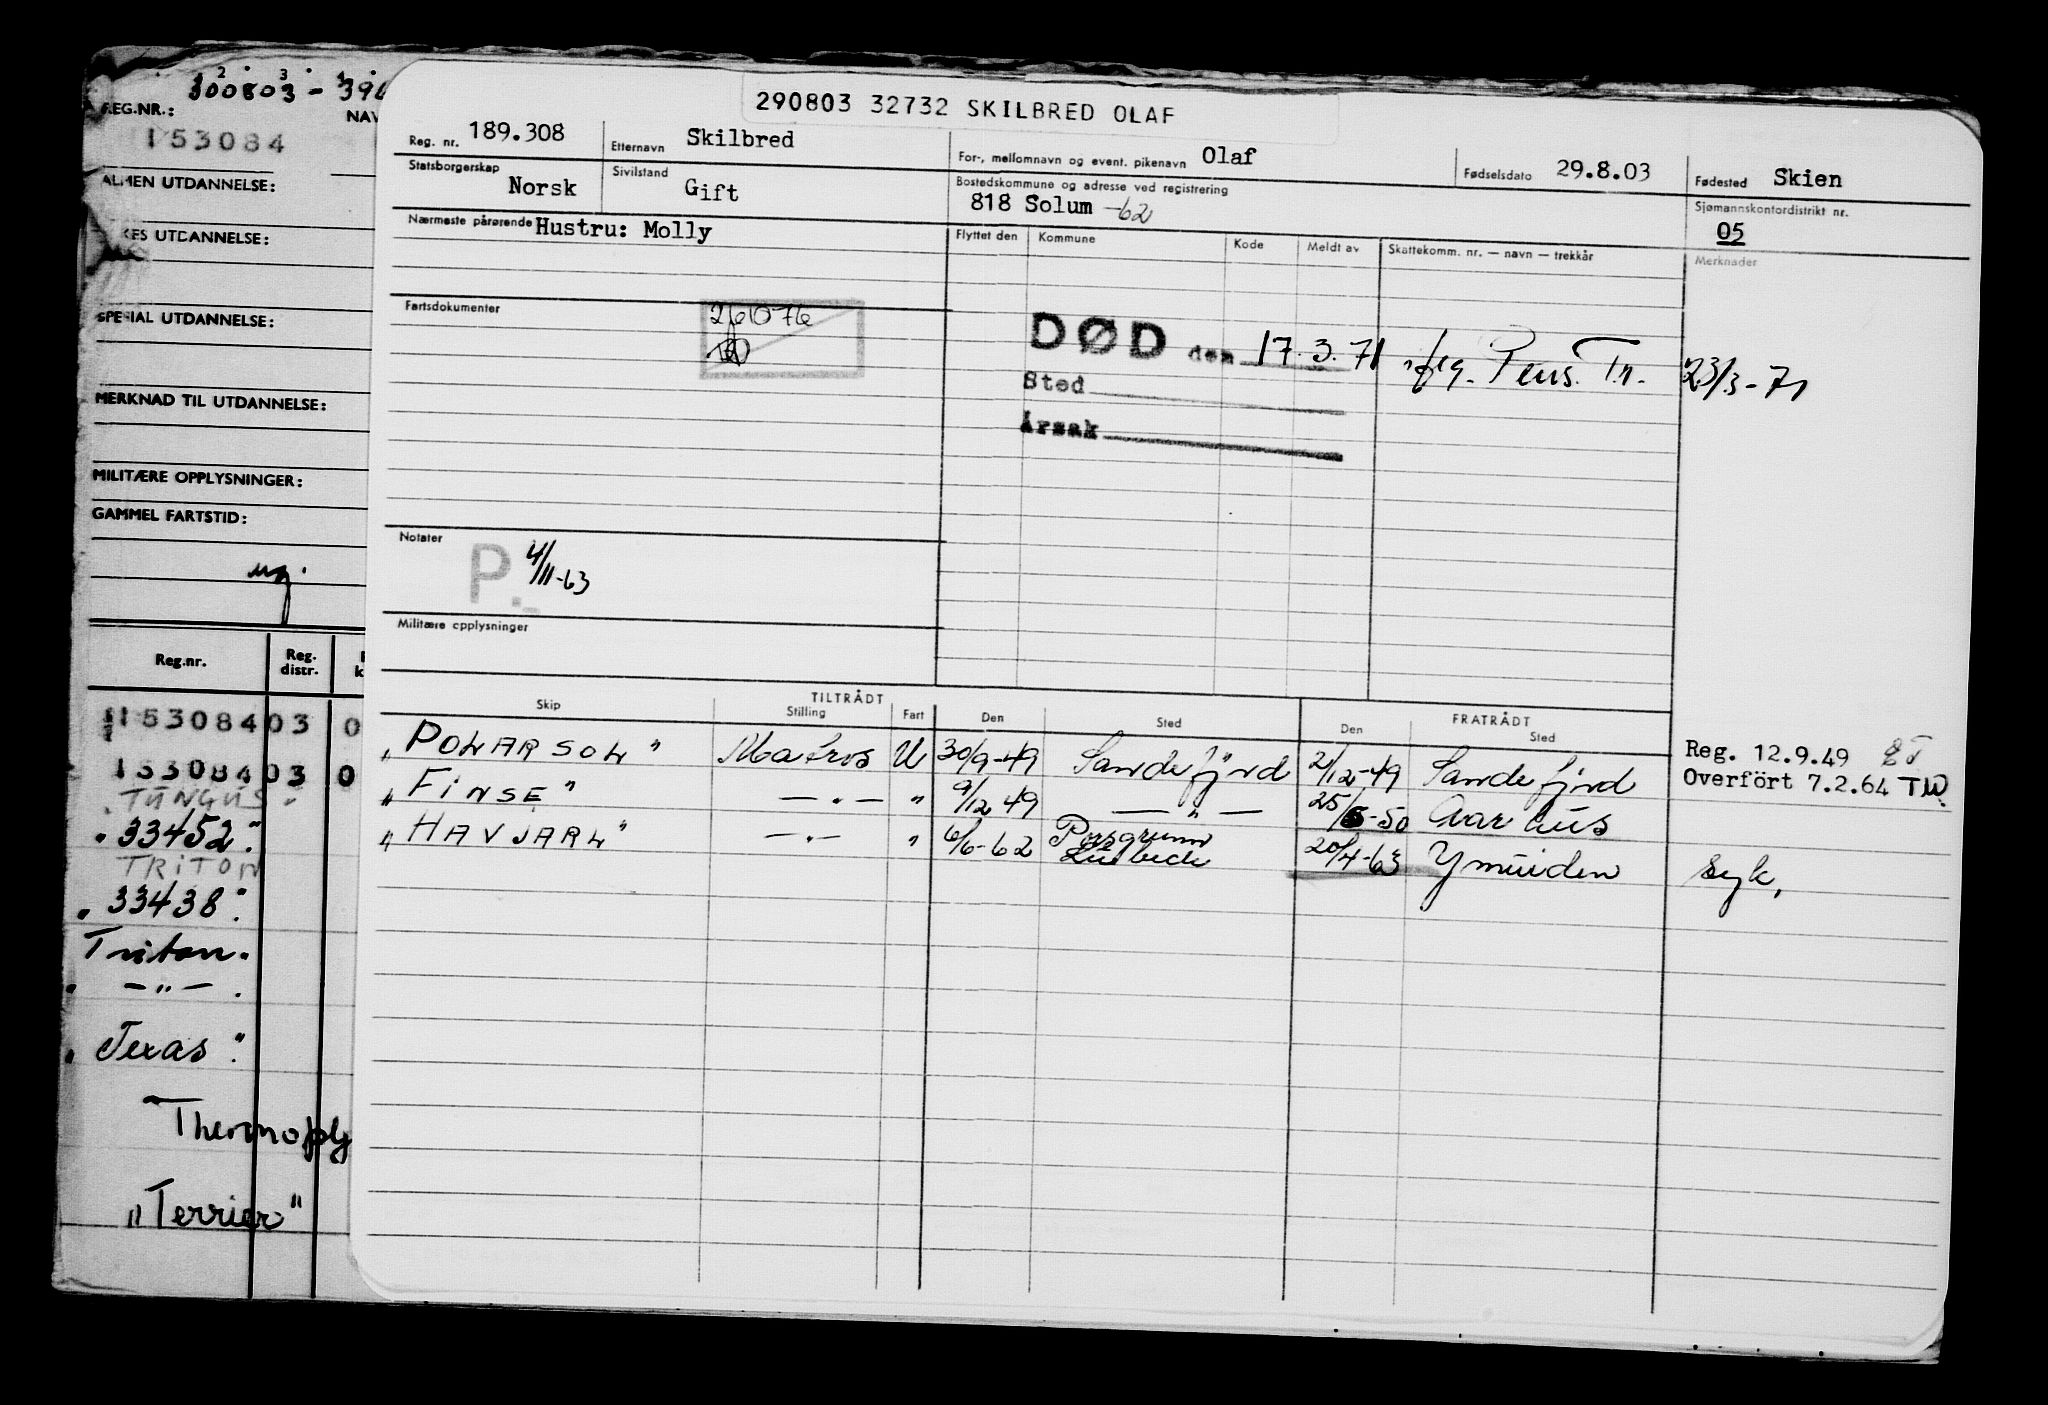 300803 - 390
REG.NR.:
NAV
153084
ALMEN UTDANNELSE:
UTDANNELSE:
SPESIAL UTDANNELSE:
MERKNAD TIL UTDANNELSE:
MILITÆRE OPPLYSNINGER:
GAMMEL FARTSTID:
Reg.nr. Reg. distr.
15308403 0
15308403 0
TUNGUS
"33452"
TRITON
"33438"
Triton
" — " —
"Texas"
Thermoply
"Terrier"
290803 32732 SKILBRED OLAF
Reg. nr. 189.308 Etternavn Skilbred For-, mellomnavn og event. pikenavn Olaf Fødselsdato 29.8.03 Fødested Skien
Statsborgerskap Norsk Sivilstand Gift Bostedskommune og adresse ved registrering 818 Solum -62 Sjømannskontordistrikt nr. 05
Nærmeste pårørende Hustru: Molly Flyttet den Kommune Kode Meldt av Skattekomm. nr. — navn — trekkår Merknader
Fartsdokumenter
261076
DØD den 17.3.71 Pens. Tr. 23/3-71
Sted
Årsak
Notater P. 4/11-63
Militære opplysninger
TILTRÅDT FRATRÅDT
Skip Stilling Fart Den Sted Den Sted
"POLARSOL" Matros U 30/9-49 Sandefjord 2/12-49 Sandefjord Reg. 12.9.49
"FINSE" — " — " 9/12 49 — " — 25/5-50 Aarhus Overfört 7.2.64 TW
"HAVJARL" — " — " 6/6-62 Porsgrunn 20/4-63 Ymuiden syk,